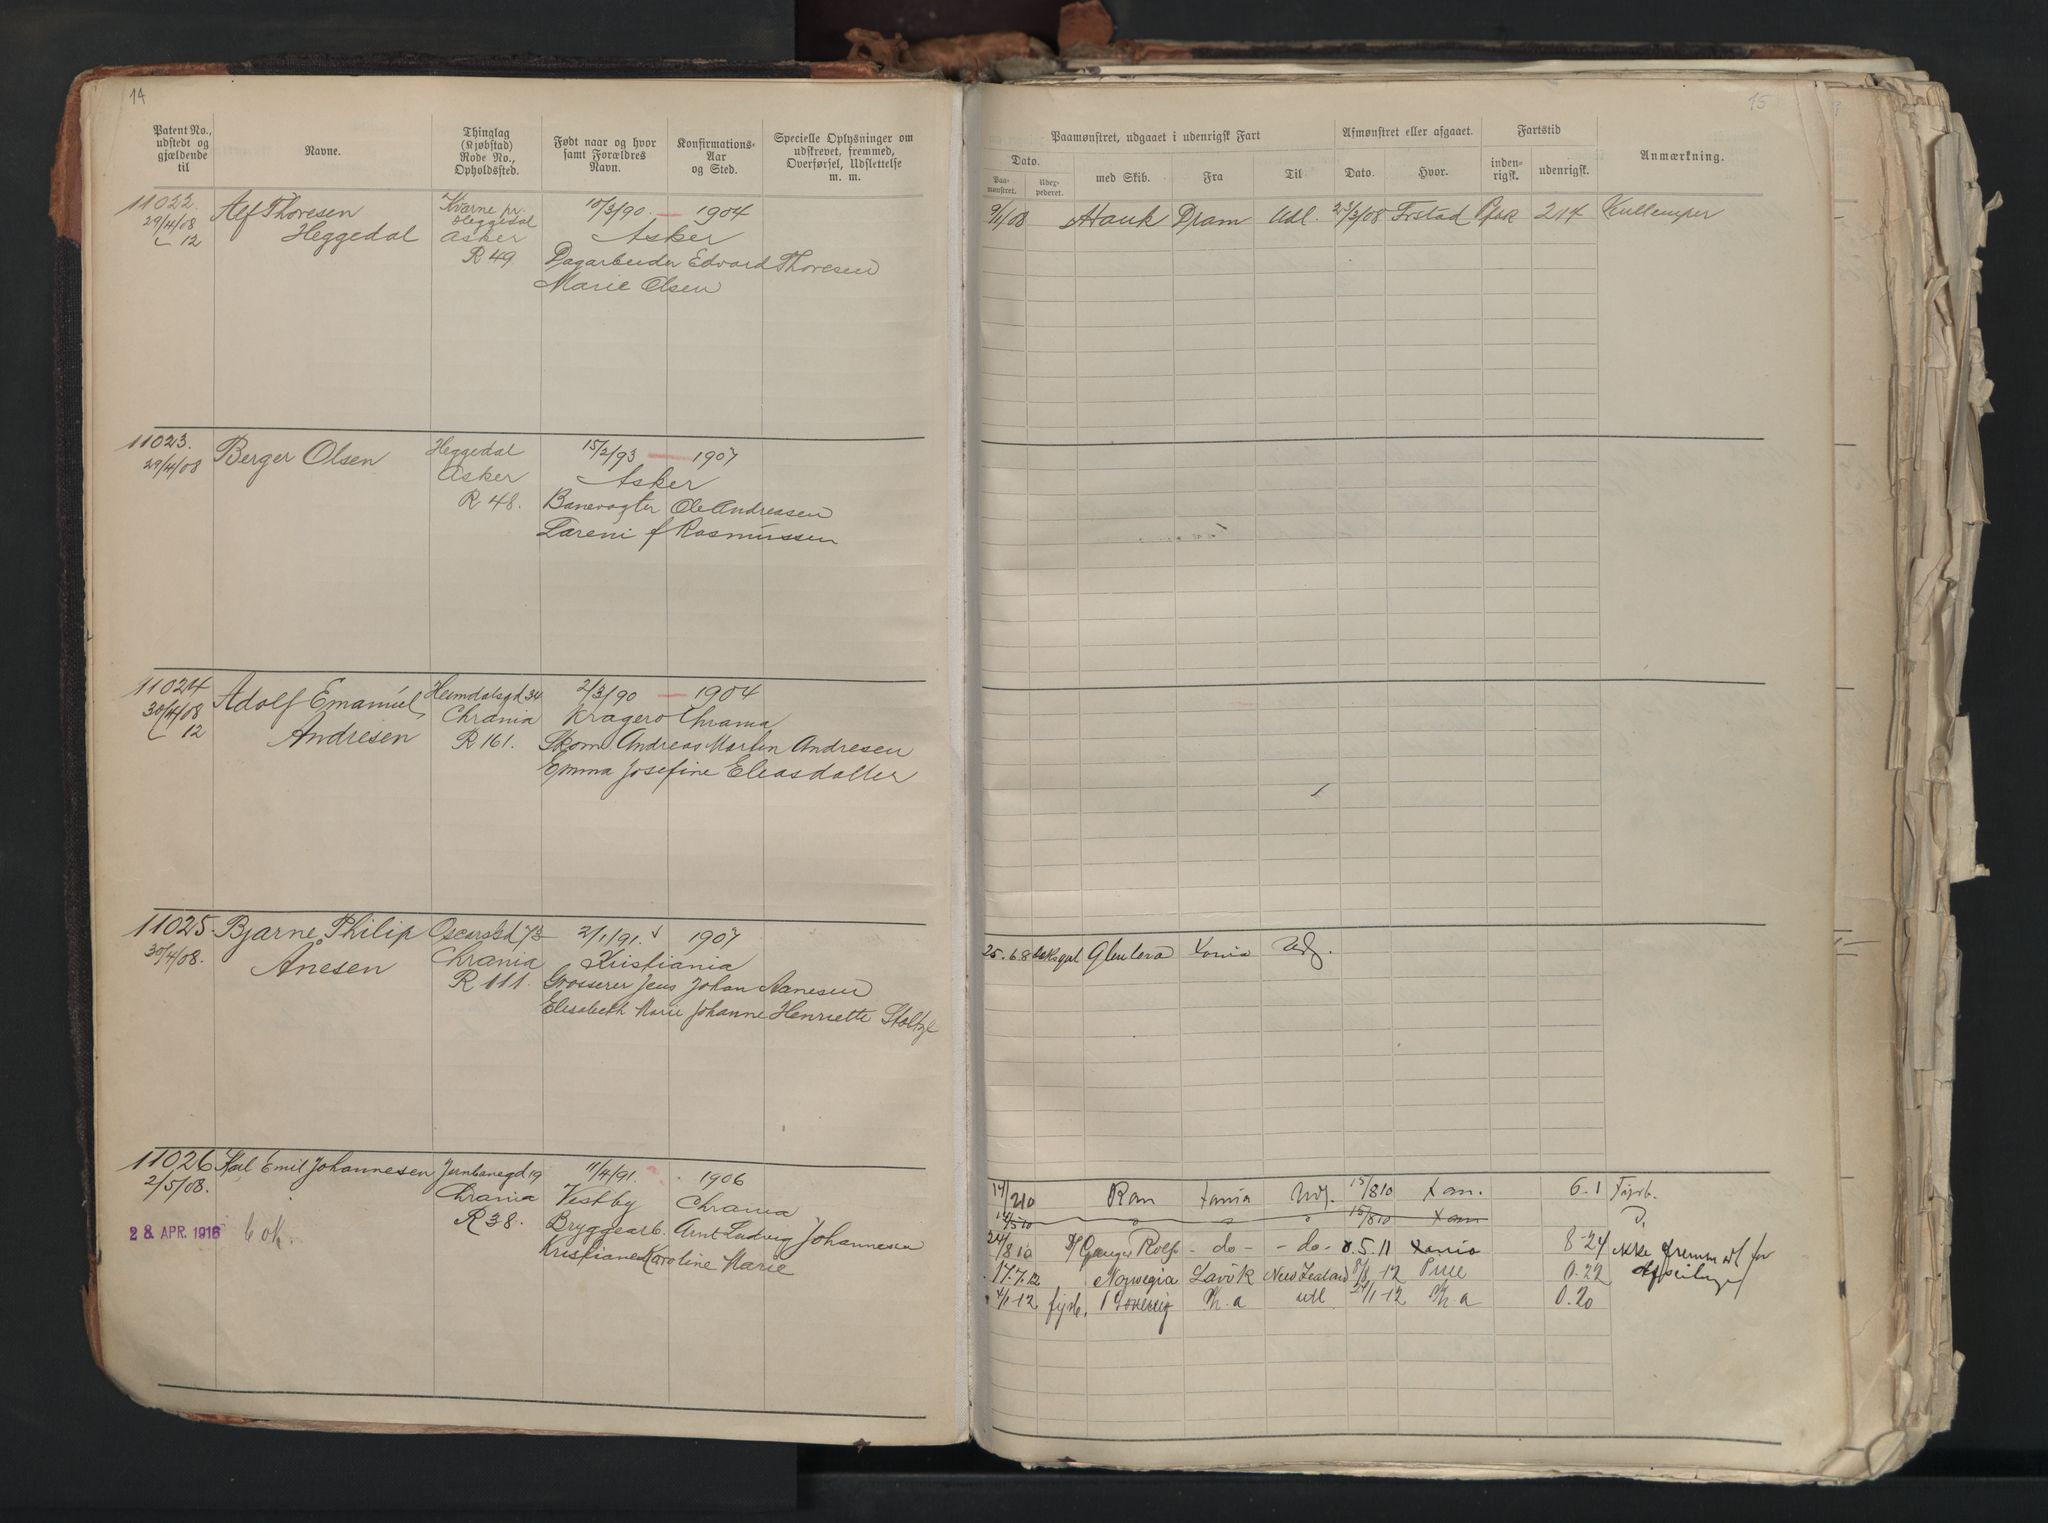 14
Patent No., udstedt og gjældende til
Navne.
Thinglag (Kjøbstad) Rode No., Opholdssted.
Født naar og hvor samt Forældres Navn.
Konfirmations- Aar og Sted.
Specielle Oplysninger om udskrevet, fremmed, Overførsel, Udslettelse m. m.
11022. Alf Thoresen Kværne pr. 10/3/90. — 1904
29/4/08 Heggedal Heggedal Asker
12 Asker
R 49 Dagarbeider Edvard Thoresen
Marie Olsen
11023. Berger Olsen Heggedal 15/2/93 — 1907
29/4/08 Asker Asker
R 48. Banevogter Ole Andreasen
f Rasmussen
11024 Adolf Emanuel Heimdalsgd 34 2/3/90 — 1904
30/4/08 Chrania Kragerø Chrania
12 Andresen R 161. Skom. Andreas Martin Andresen
Emma Josefine Eleasdatter
11025. Bjarne Philip Oscarsgd 2/1/91. 1907
30/4/08. Anesen Chrania Kristiania
R 111. Grosserer Jens Johan Aanesen
Elisabeth Marie Johanne Henriette
11026 Karl Emil Johannesen Jernbanegd 19 11/4/91. 1906
2/5/08. Chrania Vestby Chrania
28. APR. 1916 R 38. Bryggearb. Arnt Ludvig Johannesen
Kristiane Karoline Marie
15
Paamønstret, udgaaet i udenrigsk Fart
Afmønstret eller afgaaet.
Fartstid
Anmærkning.
Dato.
Paa- mønstret.
Uber- pederet.
med Skib.
Fra
Til
Dato.
Hvor.
inden- rigsk.
udenrigsk.
9/1/08 Hauk Dram Udl. 23/3/08 Frstad 214 Kullemper
25.6.8 Glenlora Xania Udl.
14/210 Ran Xania Udl. 15/810 Xan. 6.1 Fyrb.
14/510 15/810 Xan
24/810 D/ Ganger Rolf - do - - do - 5.11 Xania 8-24 ikke fremm
17.7.12 Norwegia Larvik New Zealand 12 0.22
12 fyrb. Kr.a udl 12 Kr.a 0.20